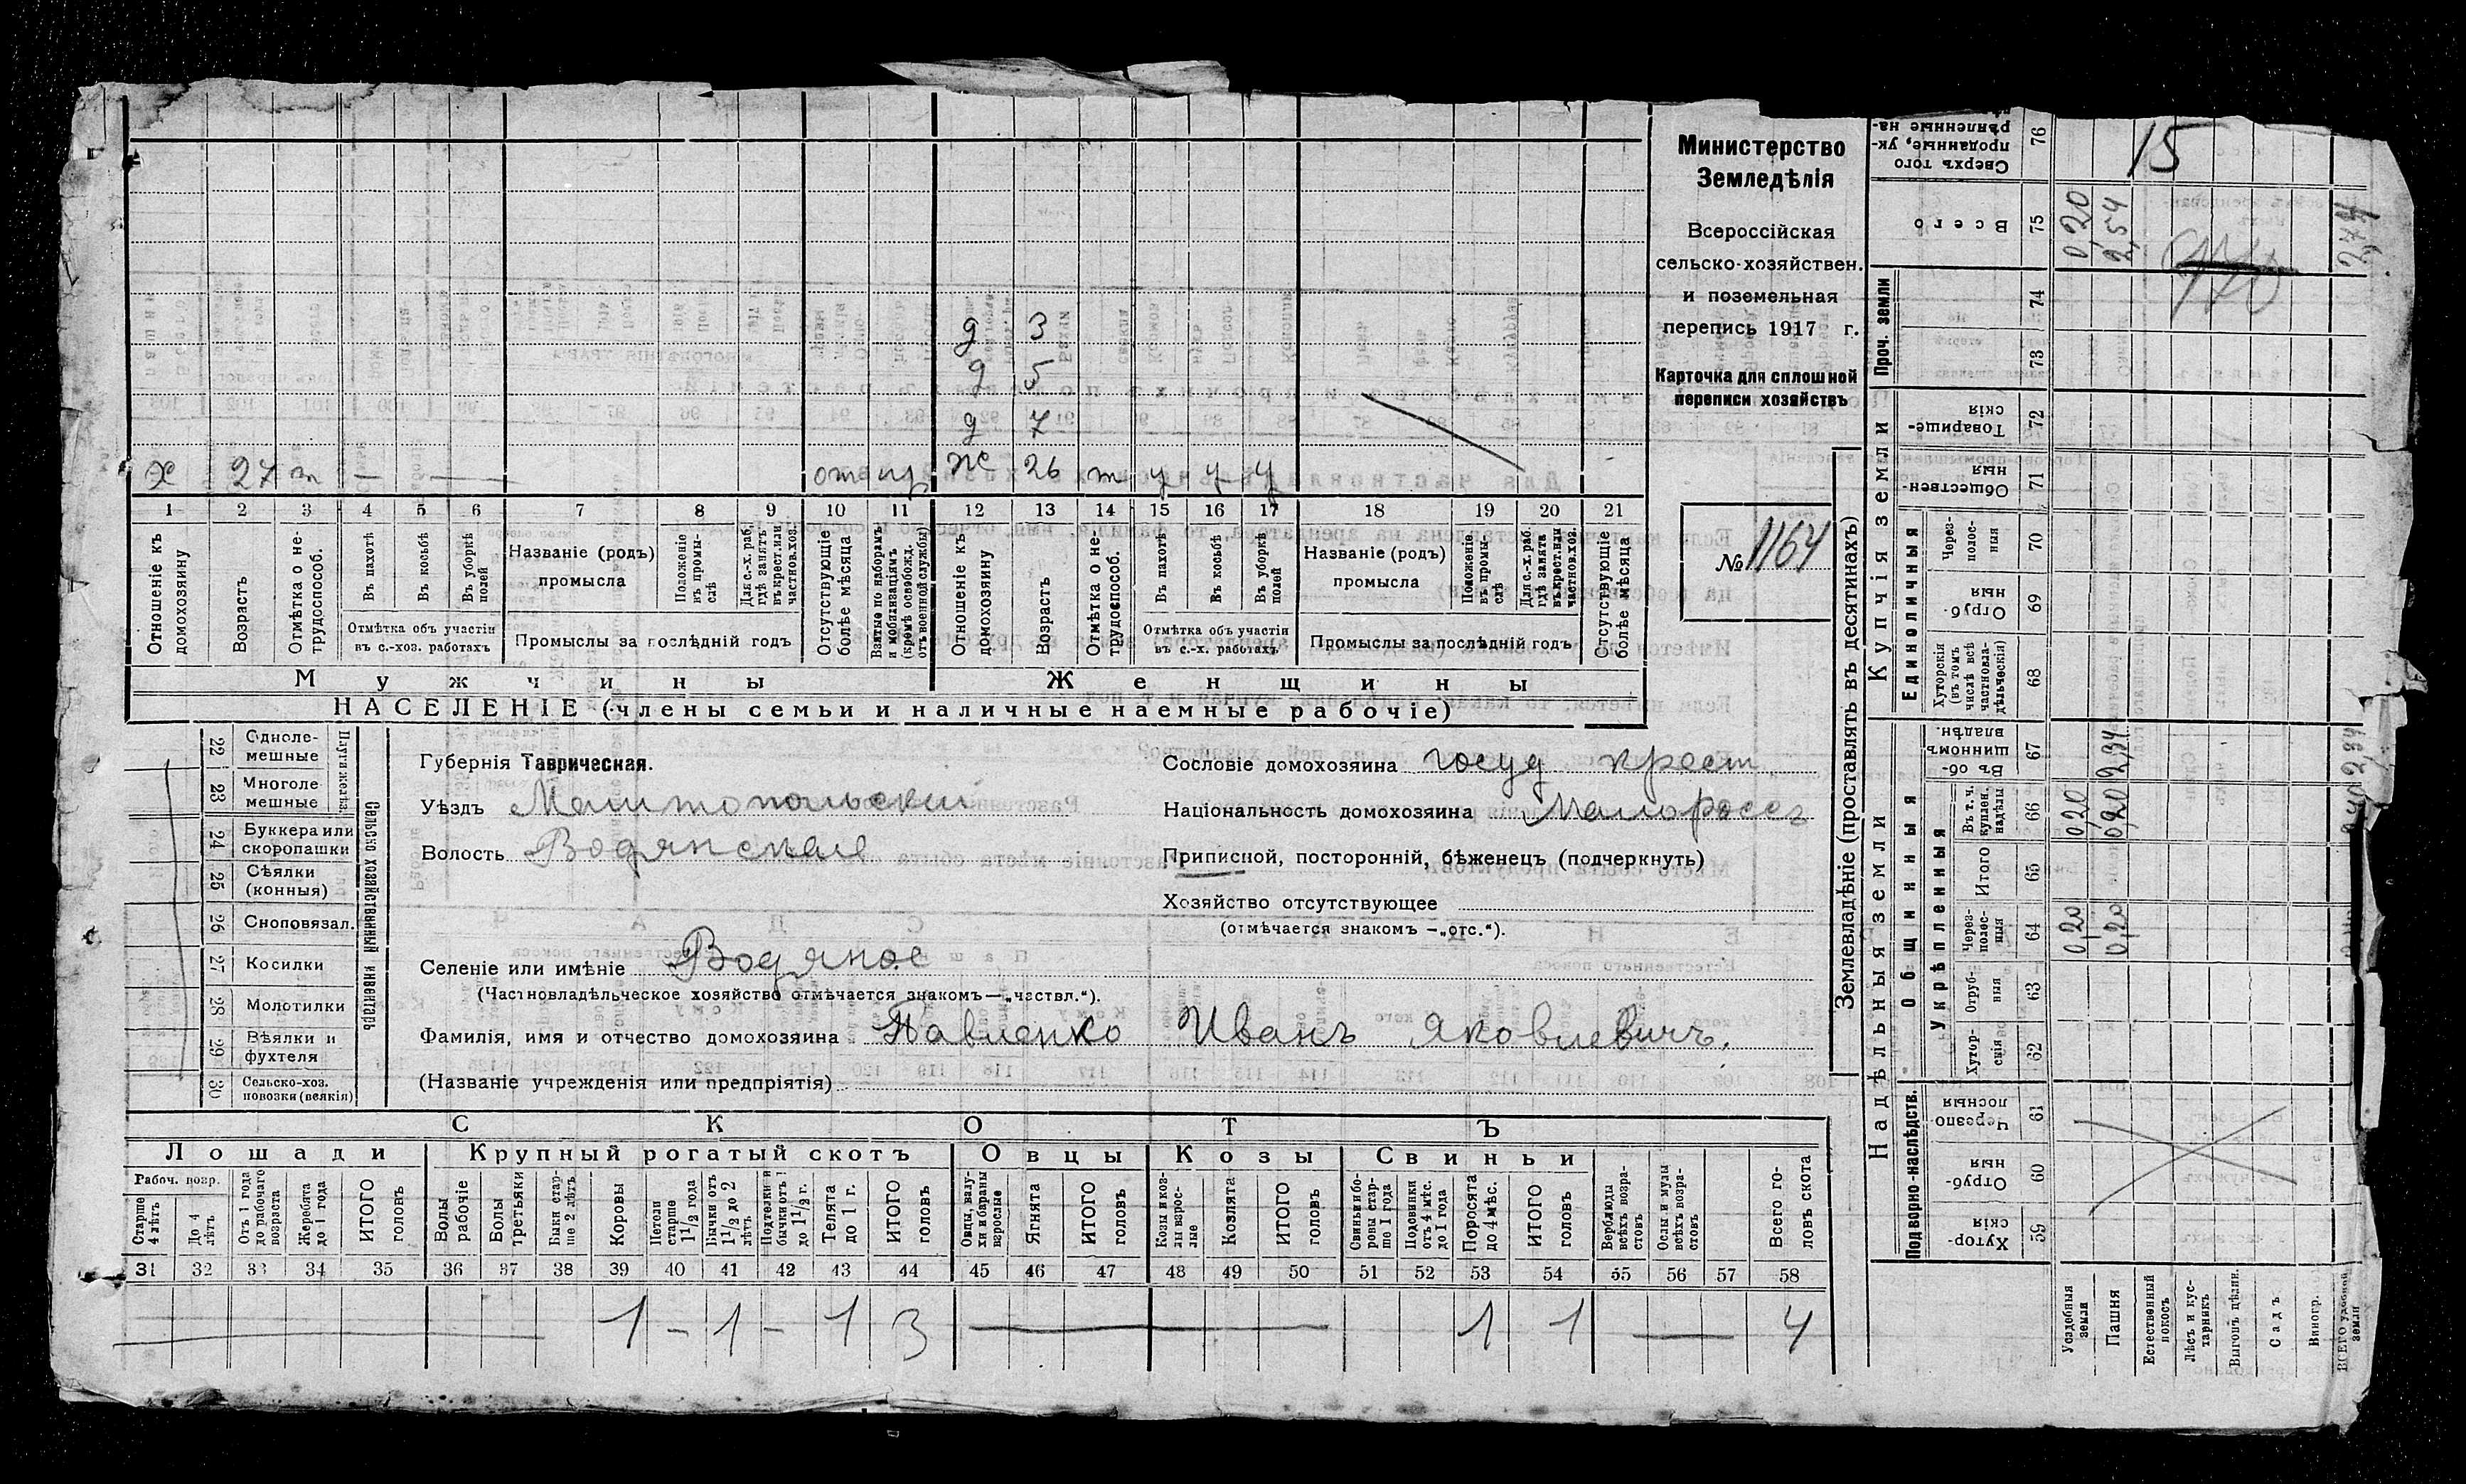 Министерство
Земледѣлія
Всероссійская
сельско-хозяйствен.
и поземельная
перепись 1917 г.
Карточка для сплошной
переписи хозяйствъ
№ 1164
д 3
д 5
д 7
х 27 т — — — ж 26 т у у у
1 2 3 4 5 6 7 8 9 10 11 12 13 14 15 16 17 18 19 20 21
Отношеніе къ домохозяину
Возрастъ
Отмѣтка о нетрудоспособ.
Въ пахотѣ
Въ косьбѣ
Въ уборкѣ полей
Отмѣтка объ участіи въ с.-хоз. работахъ
Названіе (родъ) промысла
Положеніе въ промыслѣ
Для с.-х. раб. гдѣ занятъ въ крест. или частнов. хоз.
Промыслы за послѣдній годъ
Отсутствующіе болѣе мѣсяца
Взятые по наборамъ и мобилизаціямъ (кромѣ освобожд. отъ военной службы)
Отношеніе къ домохозяину
Возрастъ
Отмѣтка о нетрудоспособ.
Въ пахотѣ
Въ косьбѣ
Въ уборкѣ полей
Отмѣтка объ участіи въ с.-х. работахъ
Названіе (родъ) промысла
Положеніе въ промыслѣ
Для с.-х. раб. гдѣ занята въ крест. или частнов. хоз.
Промыслы за послѣдній годъ
Отсутствующіе болѣе мѣсяца
Мужчины Женщины
НАСЕЛЕНІЕ (члены семьи и наличные наемные рабочіе)
Сельско хозяйственный инвентарь
22 Однолемешные
23 Многолемешные
24 Буккера или скоропашки
25 Сѣялки (конныя)
26 Сноповязал.
27 Косилки
28 Молотилки
29 Вѣялки и фухтеля
30 Сельско-хоз. повозки (всякія)
Губернія Таврическая.
Уѣздъ Мелитопольскій
Волость Водянская
Селеніе или имѣніе Водяное
(Частновладѣльческое хозяйство отмѣчается знакомъ—„частвл.“).
Фамилія, имя и отчество домохозяина Павленко Иванъ Яковлевичъ.
(Названіе учрежденія или предпріятія)
Сословіе домохозяина госуд крест
Національность домохозяина Малороссъ
Приписной, посторонній, бѣженецъ (подчеркнуть)
Хозяйство отсутствующее
(отмѣчается знакомъ —„отс.“).
СКОТЪ
Лошади Крупный рогатый скотъ Овцы Козы Свиньи
Рабоч. возр.
Старше 4 лѣтъ
До 4 лѣтъ
Отъ 1 года до рабочаго возраста
Жеребята до 1 года
ИТОГО головъ
Волы рабочіе
Волы третьяки
Быки старше 2 лѣтъ
Коровы
Нетели старше 1 1/2 года
Бычки отъ 1 1/2 до 2 лѣтъ
Подтелки и бычки отъ 1 до 1 1/2 г.
Телята до 1 г.
ИТОГО головъ
Овцы, валухи и бараны взрослые
Ягнята
ИТОГО головъ
Козы и козлы взрослые
Козлята
ИТОГО головъ
Свиньи и боровы старше 1 года
Подсвинки отъ 4 мѣс. до 1 года
Поросята до 4 мѣс.
ИТОГО головъ
Верблюды всѣхъ возрастовъ
Ослы и мулы всѣхъ возрастовъ
Всего головъ скота
31 32 33 34 35 36 37 38 39 40 41 42 43 44 45 46 47 48 49 50 51 52 53 54 55 56 57 58
1 – 1 – 1 3 — 1 1 — 4
Землевладѣніе (проставлять въ десятинахъ)
Надѣльныя земли Купчія земли Проч. земли
Подворно-наслѣдств.
Общинныя
Укрѣпленныя
Единоличныя
59 Хуторскія
60 Отрубныя
61 Черезполосныя
62 Хуторскія
63 Отрубныя
64 Черезполосныя
65 Итого
66 Въ т. ч. куплен. надѣлы
67 Въ общинномъ владѣн.
68 Хуторскія (въ томъ числѣ всѣ частновладѣльческія)
69 Отрубныя
70 Черезполосныя
71 Общественныя
72 Товарищескія
73
74
75 Всего
76 Сверхъ того проданные, укрѣпленные
Усадебныя земли 0,20 0,20 0,20
Пашня 0,20 0,20 2,34 2,54
Естественный покосъ
Лѣсъ и кустарникъ
Выгонъ цѣлин.
Садъ
Виногр.
ВСЕГО удобной земли 2,34 2,74
15